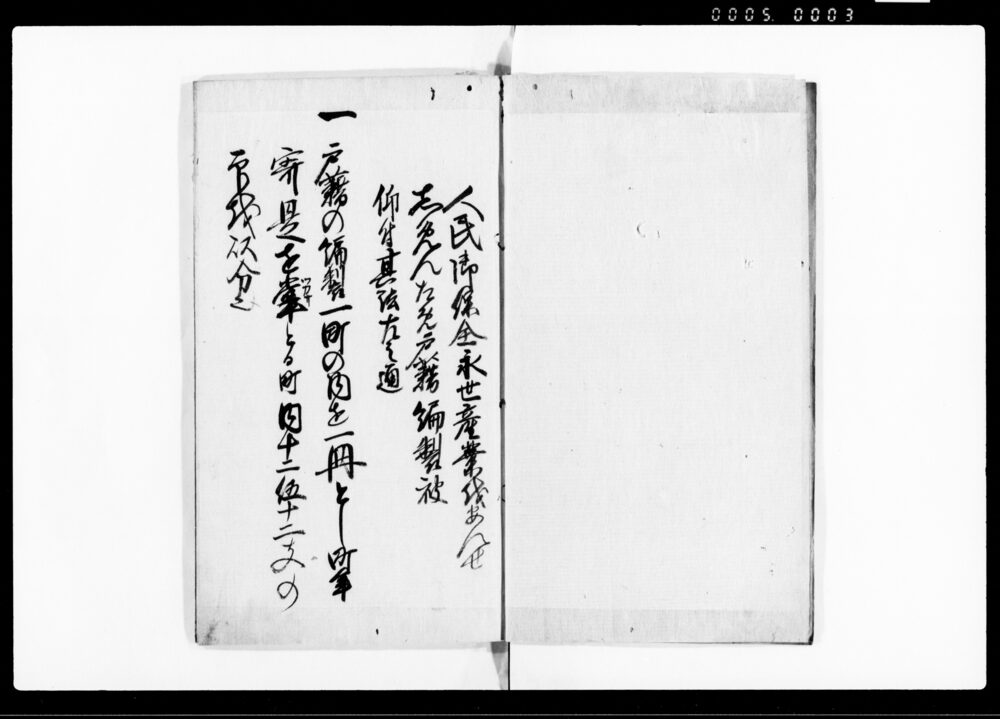 0005. 0003
人民御保全永世産業を安んせ
志めんため戸籍編製被
仰付其法左之通
一
戸籍の編製一町の内を一冊とし町年
寄是を掌とる町内十二伍十二支の
を以分之